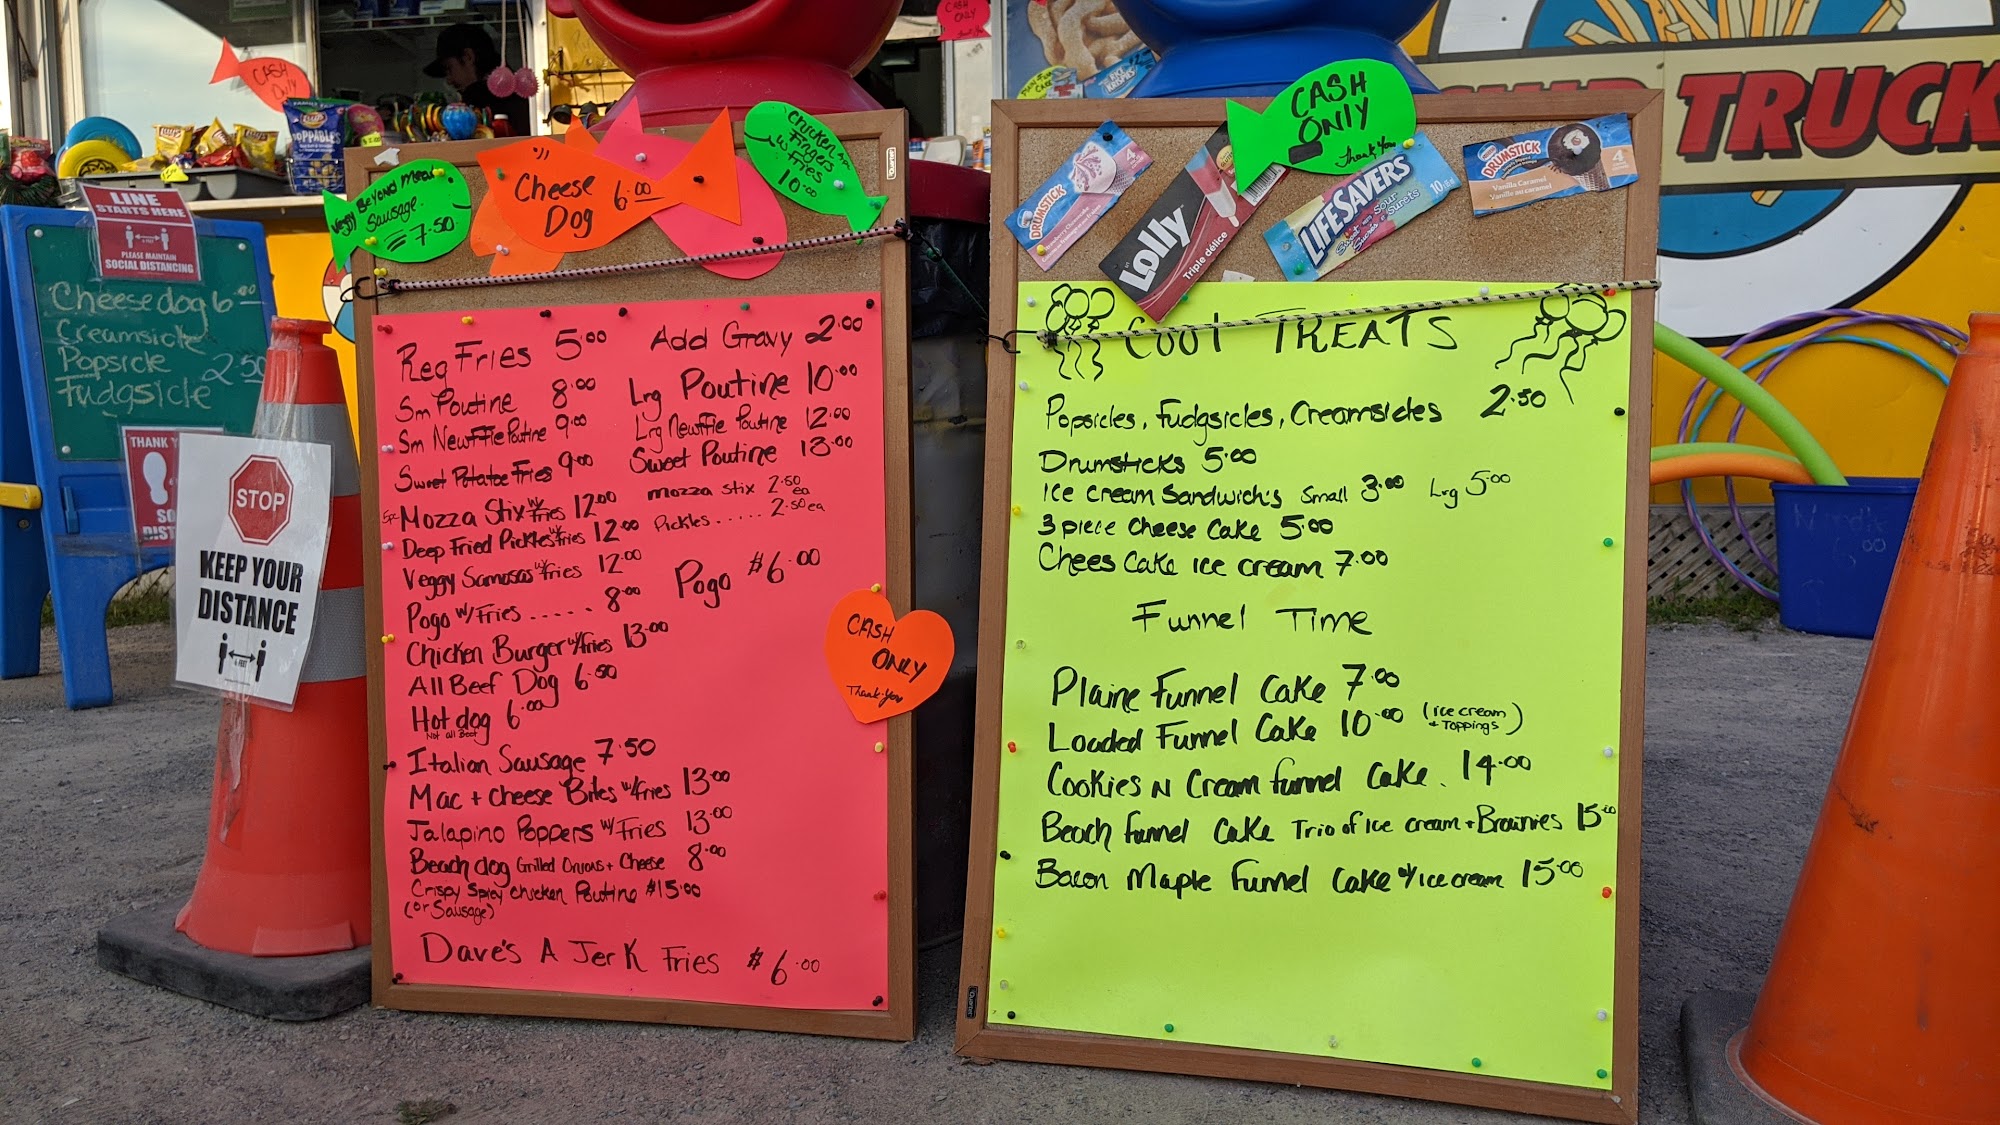 CASH ONLY
CASH ONLY
Lay's
POPPABLES
TRUCK
LINE
STARTS HERE
PLEASE MAINTAIN
SOCIAL DISTANCING
Cheesedog 6.00
Creamsicle
Popsicle 2.50
Fudgsicle
THANK
SO
DIST
STOP
KEEP YOUR
DISTANCE
6 FEET
Veggy Beyond Meat
Sausage.
7.50
Cheese
Dog 6.00
Chicken
Fingers
w Fries
10.00
Reg Fries 5.00 Add Gravy 2.00
Sm Poutine 8.00 Lrg Poutine 10.00
Sm Newffie Poutine 9.00 Lrg Newffie Poutine 12.00
Sweet Potatoe Fries 9.00 Sweet Poutine 13.00
5pc Mozza Stix w/ Fries 12.00 mozza stix 2.50 ea
Deep Fried Pickles w/ Fries 12.00 Pickles..... 2.50 ea
Veggy Samosas w/ Fries 12.00
Pogo w/ Fries ..... 8.00 Pogo $6.00
Chicken Burger w/ Fries 13.00
All Beef Dog 6.50
Hot dog 6.00
Not all Beef
Italian Sausage 7.50
Mac + cheese Bites w/ Fries 13.00
Jalapino Poppers w/ Fries 13.00
Beach dog Grilled Onions + Cheese 8.00
Crispy Spicy Chicken Poutine $15.00
(or Sausage)
Dave's A Jerk Fries $6.00
CASH
ONLY
Thank-You
CASH
ONLY
Thank You
DRUMSTICK
4
Lolly
Triple délice
LIFESAVERS
10
Nestlé
DRUMSTICK
Vanilla Caramel
Vanille au caramel
4
Cool TREATS
Popsicles, Fudgsicles, Creamsicles 2.50
Drumsticks 5.00
Ice cream Sandwich's Small 3.00 Lrg 5.00
3 piece Cheese Cake 5.00
Chees Cake ice cream 7.00
Funnel Time
Plaine Funnel Cake 7.00
Loaded Funnel Cake 10.00 (ice cream + Toppings)
Cookies N Cream funnel Cake. 14.00
Beach funnel Cake Trio of Ice cream + Brownies 15.00
Bacon Maple Funnel Cake w/ Ice cream 15.00